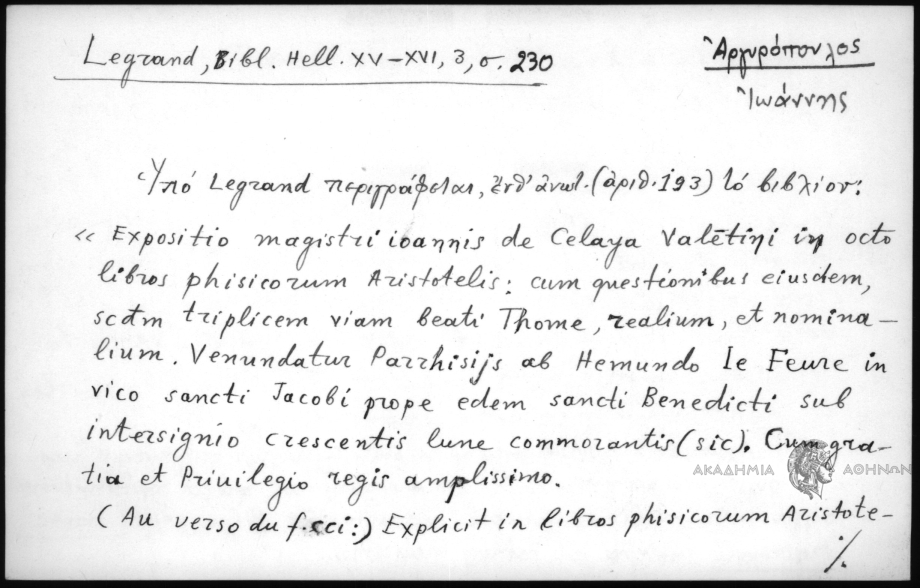 Legrand, Bibl. Hell. XV-XVI, 3, σ. 230
Ἀργυρόπουλος
Ἰωάννης
Ὑπό Legrand περιγράφεται, ἐνθ' ἀνωτ. (ἀριθ. 193) τό βιβλίον:
« Expositio magistri ioannis de Celaya Valētini in octo
libros phisicorum Aristotelis: cum questionibus eiusdem,
scd̄m triplicem viam beati Thome, realium, et nomina-
lium. Venundatur Parrhisijs ab Hemundo le Feure in
vico sancti Jacobi prope edem sancti Benedicti sub
intersignio crescentis lune commorantis (sic). Cum gra-
tia et Priuilegio regis amplissimo.
(Au verso du f. cci:) Explicit in libros phisicorum Aristote-
./.
ΑΚΑΔΗΜΙΑ ΑΘΗΝΩΝ